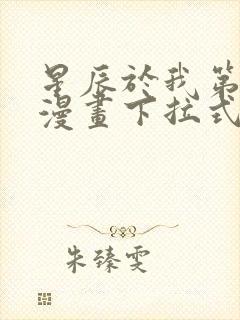 星辰於我第
漫畫下拉式
朱臻雯